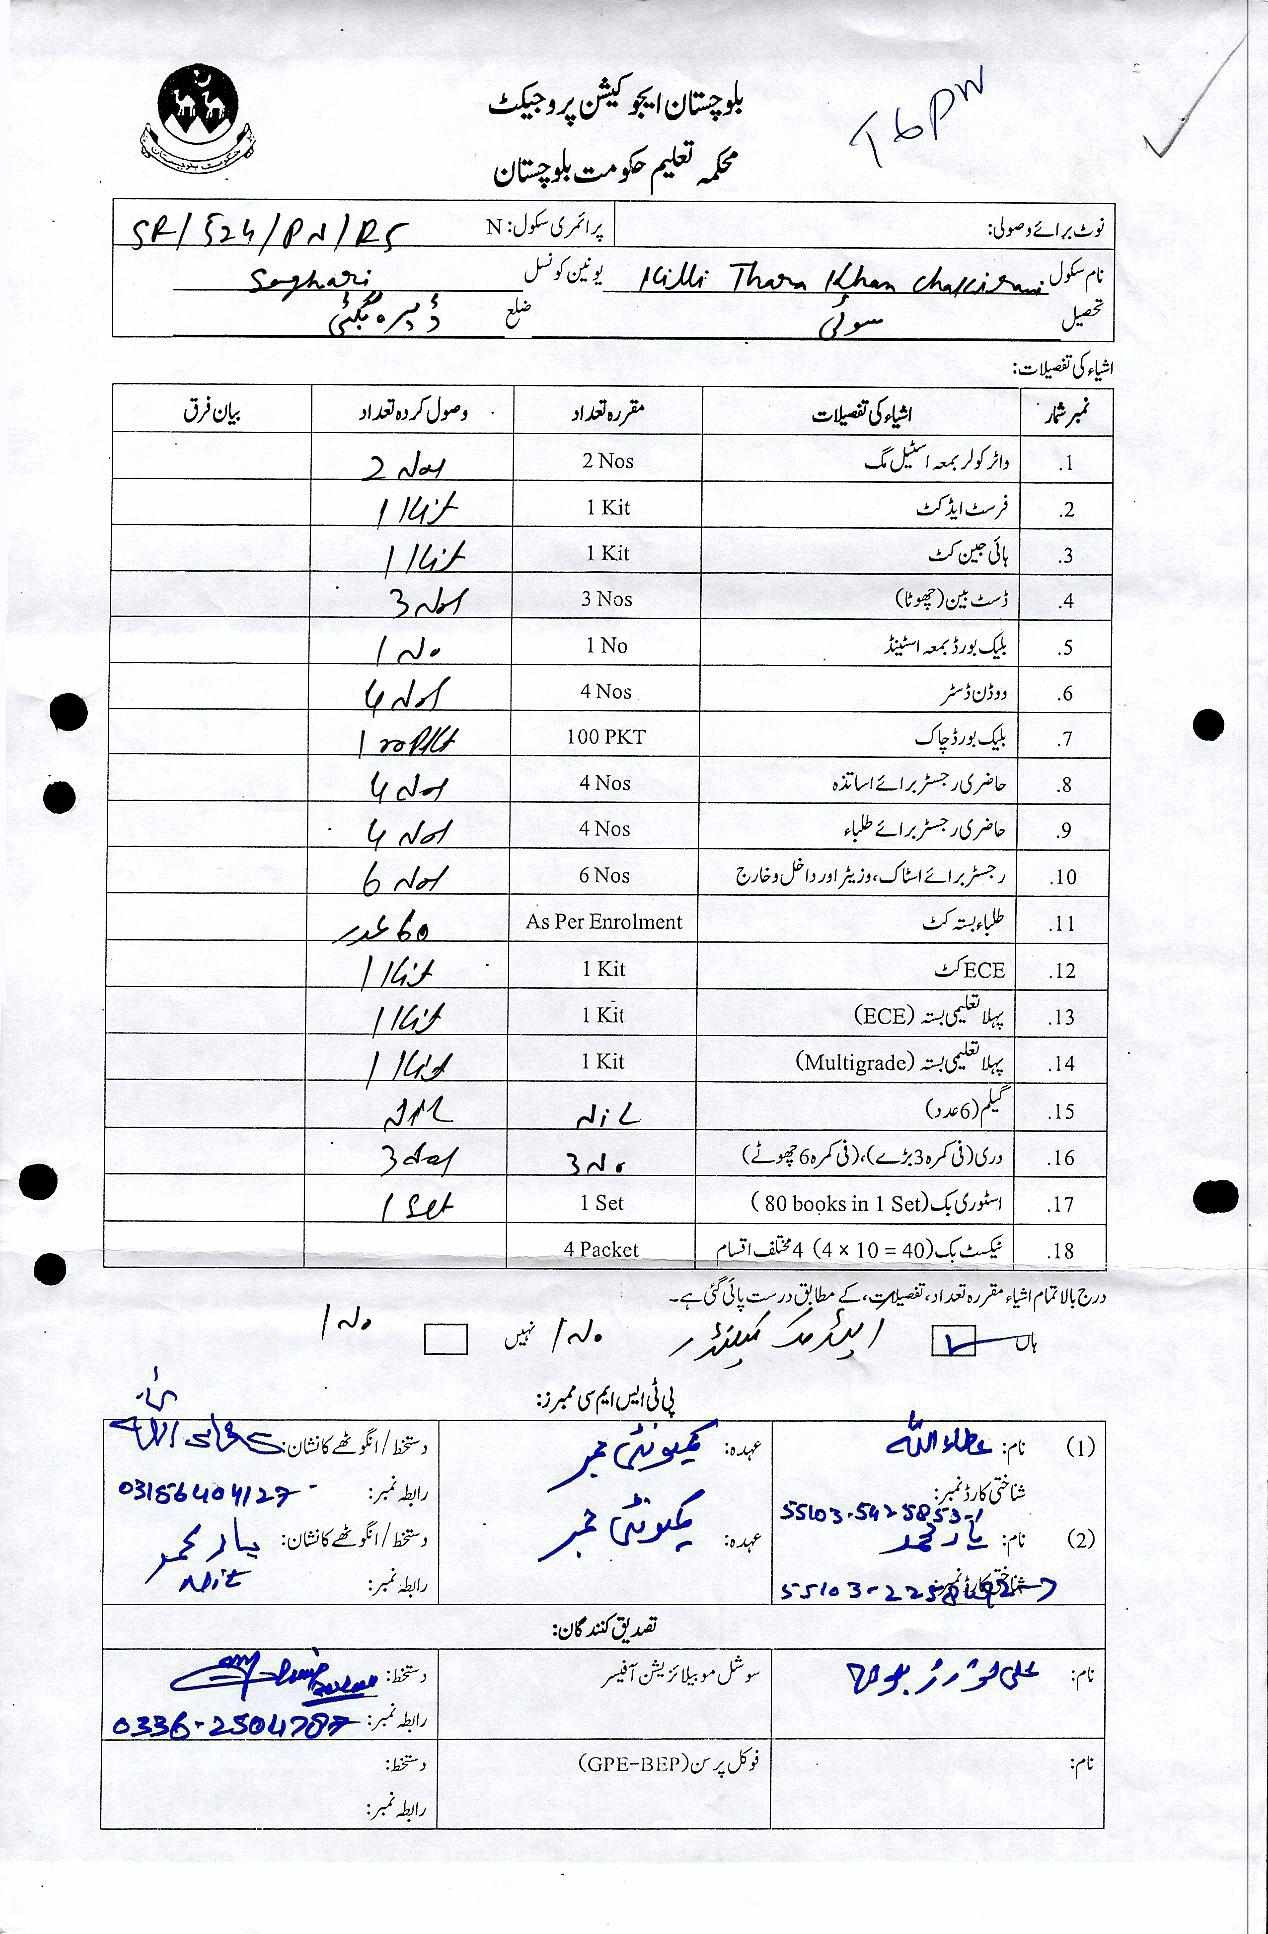 بلوچستان ایجوکیشن پروجیکٹ
محکمہ تعلیم حکومت بلوچستان
حکومت بلوچستان
نوٹ برائے وصولی: پرائمری سکول: N SR/524/PN/RS
نام سکول Killi Thara Khan یونین کونسل Saghari
تحصیل سوئی ضلع ڈیرہ بگٹی
اشیاء کی تفصیلات:
نمبر شمار اشیاء کی تفصیلات مقررہ تعداد وصول کردہ تعداد بیان فرق
1. واٹر کولر بمعہ اسٹیل مگ 2 Nos 2 Nos
2. فرسٹ ایڈ کٹ 1 Kit 1 Kit
3. ہائی جین کٹ 1 Kit 1 Kit
4. ڈسٹ بین (چھوٹا) 3 Nos 3 Nos
5. بلیک بورڈ بمعہ اسٹینڈ 1 No 1 No
6. ووڈن ڈسٹر 4 Nos 4 Nos
7. بلیک بورڈ چاک 100 PKT 100 PKT
8. حاضری رجسٹر برائے اساتذہ 4 Nos 4 Nos
9. حاضری رجسٹر برائے طلباء 4 Nos 4 Nos
10. رجسٹر برائے اسٹاک، وزیٹر اور داخل و خارج 6 Nos 6 Nos
11. طلباء بستہ کٹ As Per Enrolment 60 عدد
12. ECE کٹ 1 Kit 1 Kit
13. پہلا تعلیمی بستہ (ECE) 1 Kit 1 Kit
14. پہلا تعلیمی بستہ (Multigrade) 1 Kit 1 Kit
15. گیلم (6 عدد) NiL NiL
16. دری (فی کمرہ 3 بڑے)، (فی کمرہ 6 چھوٹے) 3 No 3 Nos
17. اسٹوری بک (80 books in 1 Set) 1 Set 1 Set
18. ٹیکسٹ بک (4 × 10 = 40) 4 مختلف اقسام 4 Packet
درج بالا تمام اشیاء مقررہ تعداد، تفصیلات، کے مطابق درست پائی گئی ہے۔
ہاں 1 No نہیں 1 No
پی ٹی ایس ایم سی ممبرز:
(1) نام: عطاء اللہ عہدہ: کمیونٹی ممبر دستخط / انگوٹھے کا نشان: عطاء اللہ
شناختی کارڈ نمبر: 55103-5425853-1 رابطہ نمبر: 03156404127
(2) نام: یار محمد عہدہ: کمیونٹی ممبر دستخط / انگوٹھے کا نشان: یار محمد
شناختی کارڈ نمبر: رابطہ نمبر:
تصدیق کنندگان:
نام: سوشل موبیلائزیشن آفیسر دستخط:
رابطہ نمبر: 0336-2504787
نام: فوکل پرسن (GPE-BEP) دستخط:
رابطہ نمبر: